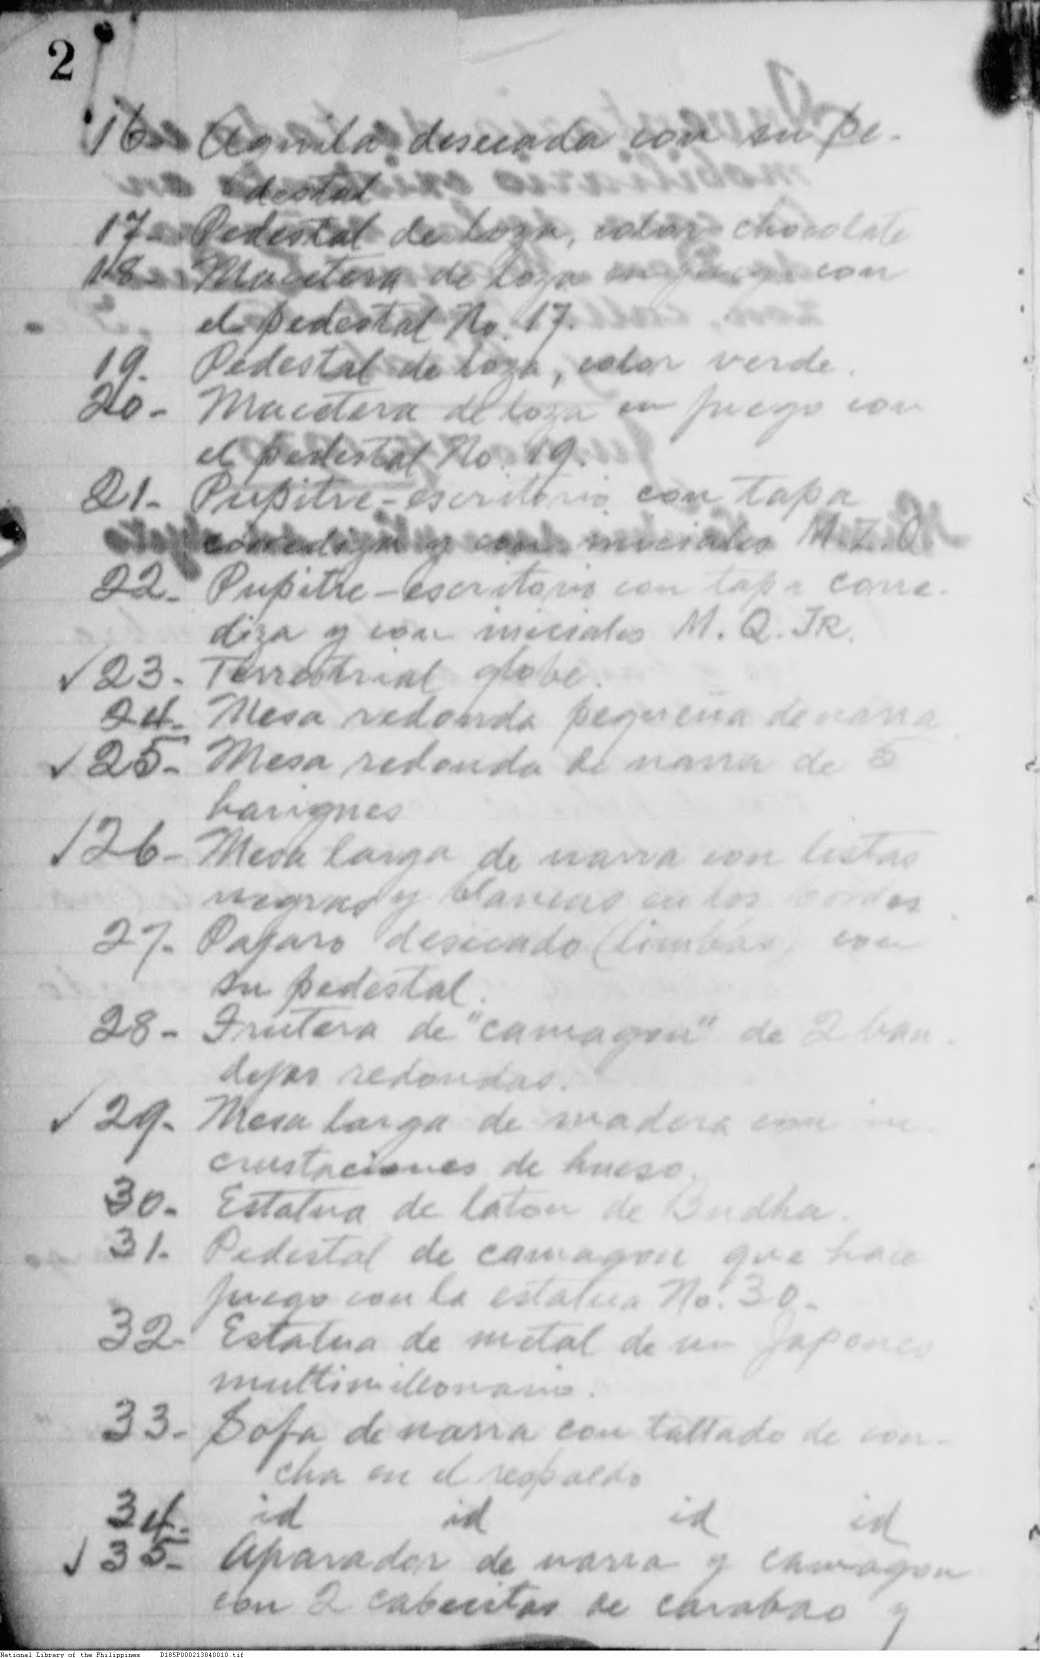 2
16- Aguila desecada con su pe-
destal
17- Pedestal de loza, color chocolate
18- Macetera de loza en juego con
el pedestal No. 17.
19. Pedestal de loza, color verde.
20- Macetera de loza en juego con
el pedestal No. 19.
21- Pupitre-escritorio con tapa
corrediza y con iniciales M.L.Q.
22- Pupitre-escritorio con tapa corre-
diza y con iniciales M. Q. JR.
✓ 23- Terrestrial globe.
24- Mesa redonda pequeña de narra
✓ 25- Mesa redonda de narra de 5
barigues
✓ 26- Mesa larga de narra con listas
negras y blancas en los bordes
27- Pajaro desecado (limbas) con
su pedestal.
28- Frutera de "camagon" de 2 ban-
dejas redondas.
✓ 29- Mesa larga de madera con in-
crustaciones de hueso.
30- Estatua de laton de Budha.
31- Pedestal de camagon que hace
juego con la estatua No. 30.
32- Estatua de metal de un Japones
multimillonario.
33- Sofa de narra con tallado de con-
cha en el respaldo
34- id id id id
✓ 35- Aparador de narra y camagon
con 2 cabecitas de carabao y
National Library of the Philippines D185P000213840010.tif